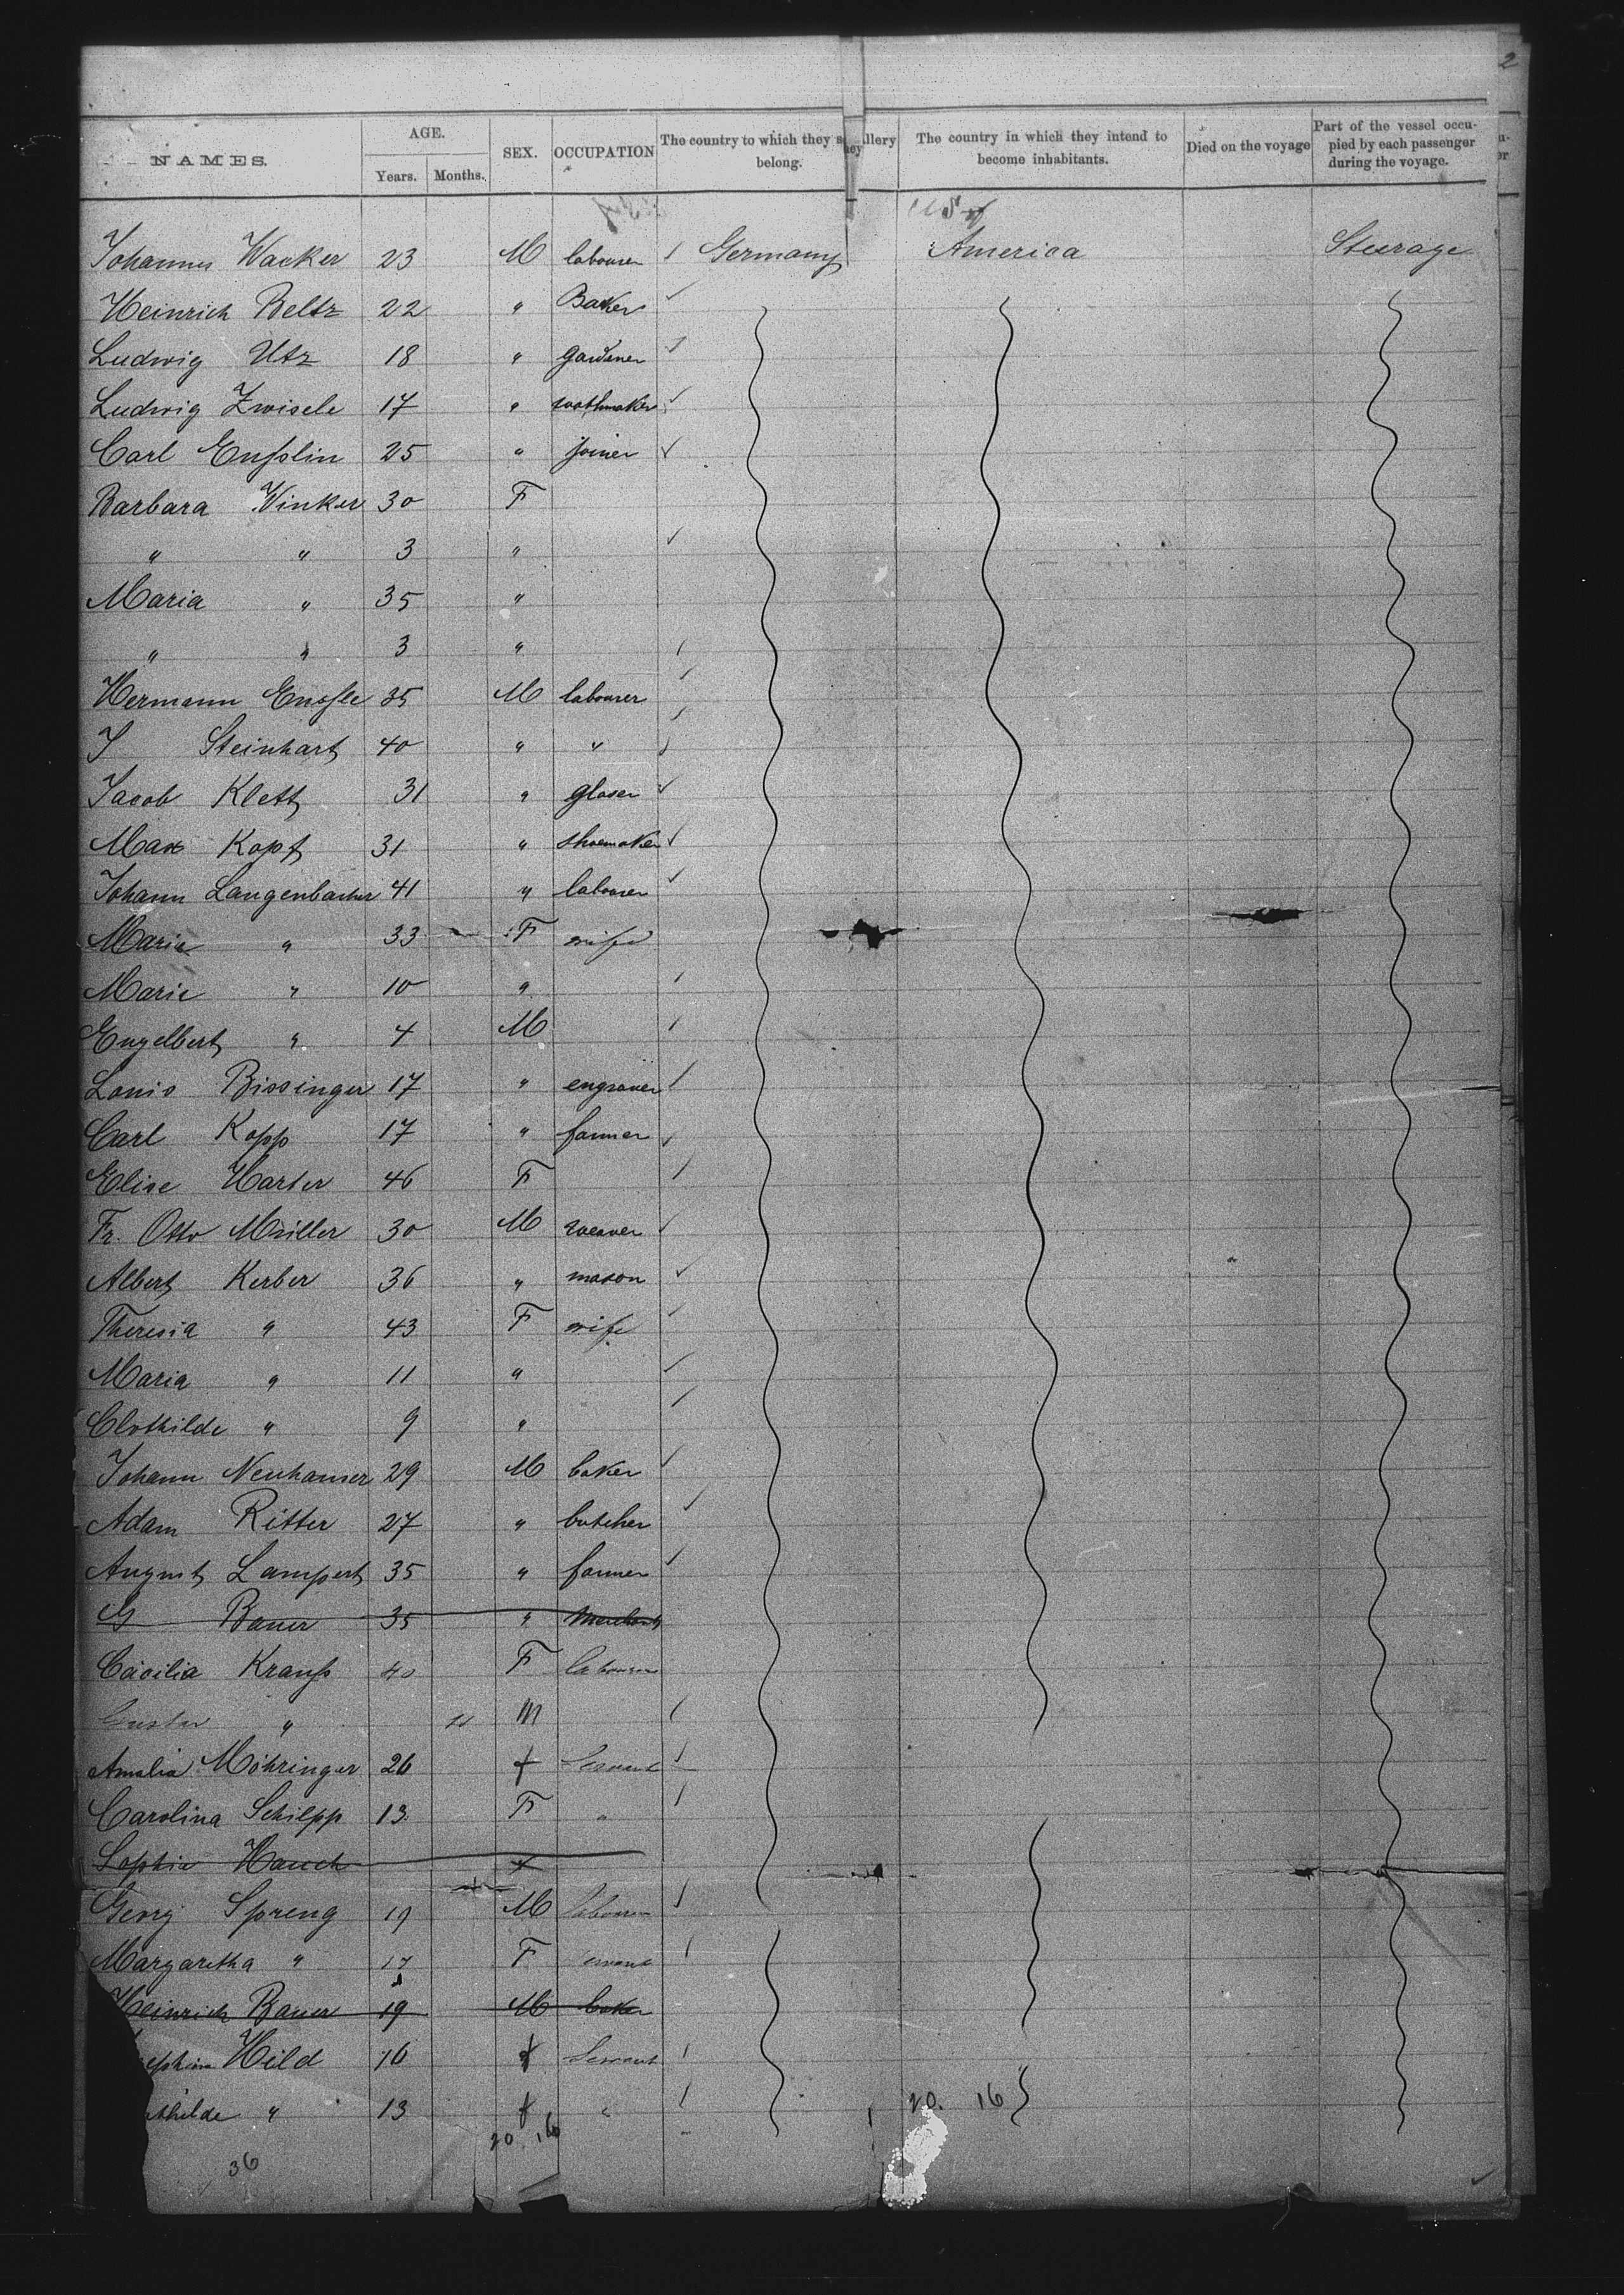 2
NAMES. AGE. Years. Months. SEX. OCCUPATION The country to which they belong. The country in which they intend to become inhabitants. Died on the voyage Part of the vessel occupied by each passenger during the voyage.
Johannes Wacker 23 M labourer Germany America Steerage
Heinrich Beltz 22 " Baker
Ludwig Utz 18 " Gardener
Ludwig Zwisele 17 "
Carl Enßlin 25 " joiner
Barbara Winker 30 F
" " 3 "
Maria " 35 "
" " 3 "
Hermann Enssle 35 M labourer
J Steinhart 40 " "
Jacob Klett 31 " glaser
Max Kopf 31 " shoemaker
Johann Langenbacher 41 " labourer
Marie " 33 F wife
Marie " 10 "
Engelbert " 4 M
Louis Bissinger 17 " engraver
Carl Kopp 17 " farmer
Elise Harter 46 F
Fr. Otto Müller 30 M weaver
Albert Kerber 36 " mason
Theresia " 43 F wife
Maria " 11 "
Clothilde " 9 "
Johann Neuhauser 29 M baker
Adam Ritter 27 " butcher
August Lampert 35 " farmer
G Bauer 35 " Merchant
Cäcilia Krauß 40 F labourer
Gustav " 11 M
Amalia Möhringer 26 f Servant
Carolina Schilpp 13 F "
Sophie Hauch f
Georg Spreng 19 M labourer
Margaretha " 17 F servant
Heinrich Bauer 19 M baker
ephine Hild 16 f Servant
thilde " 13 f " 20. 16
20. 16
36